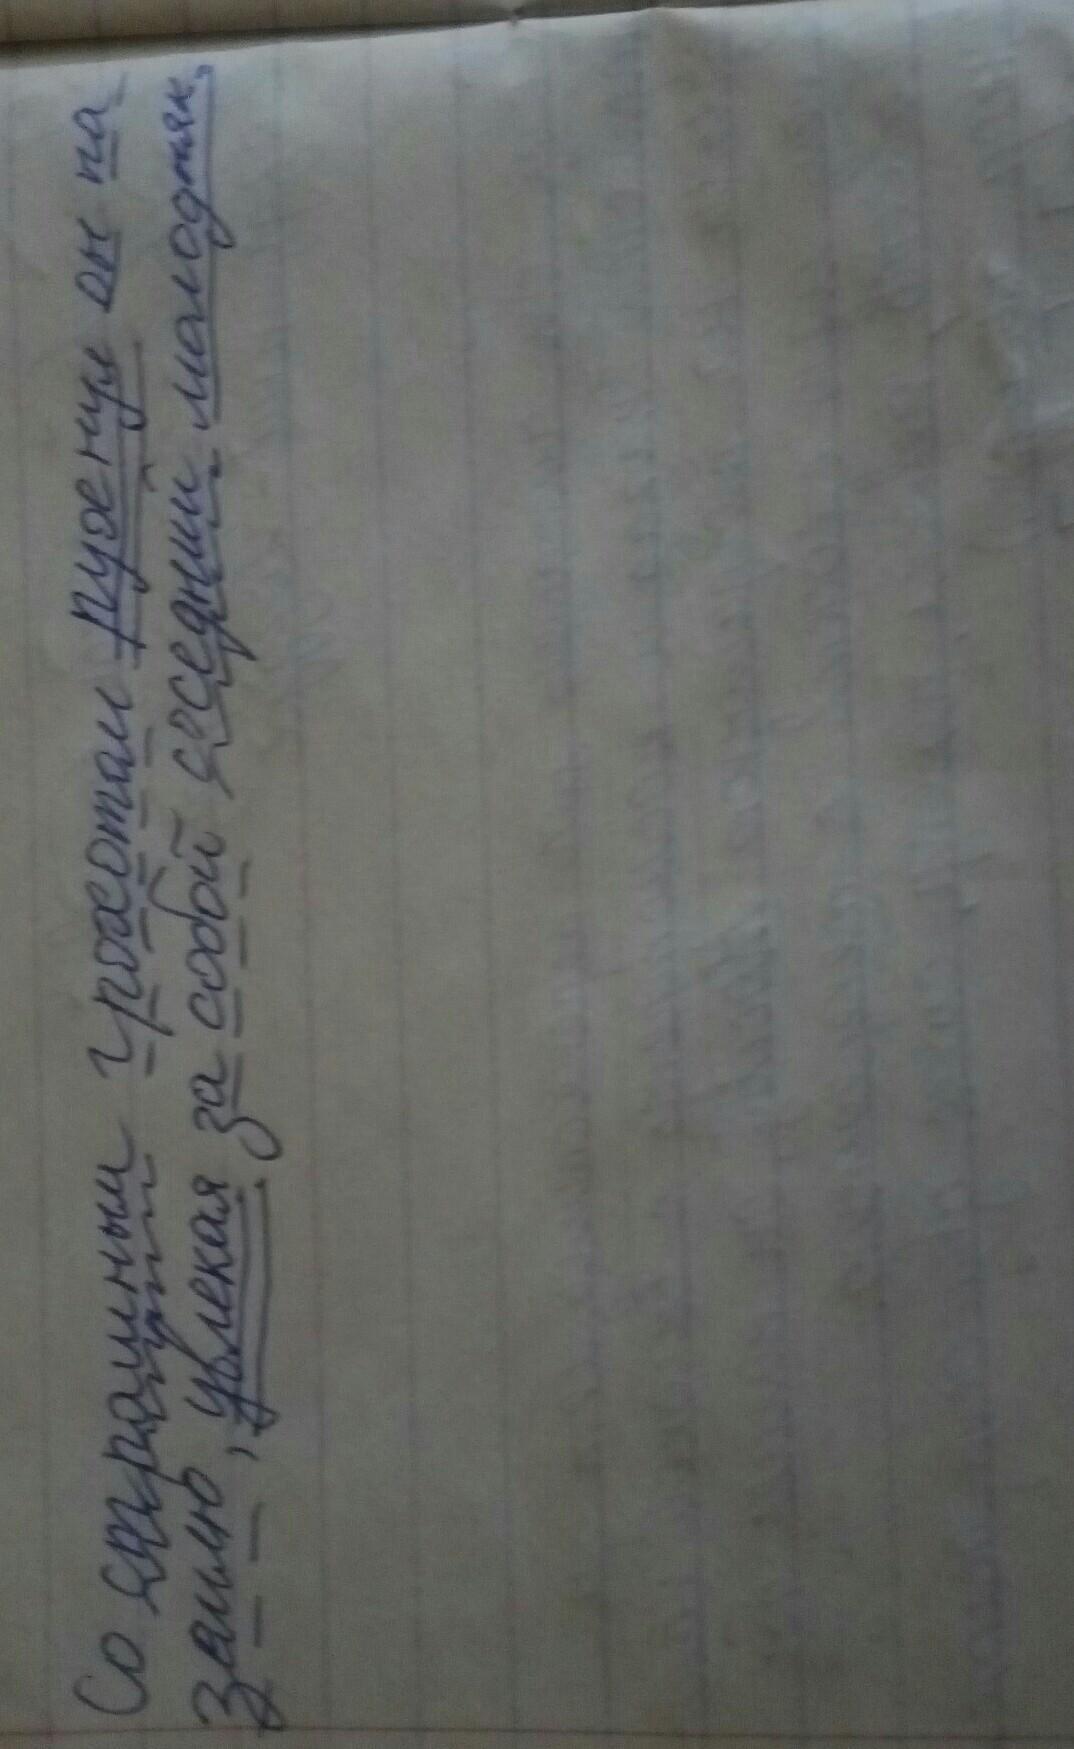 Со страшным грохотом рухнул он на
землю, увлекая за собой соседний молодняк.